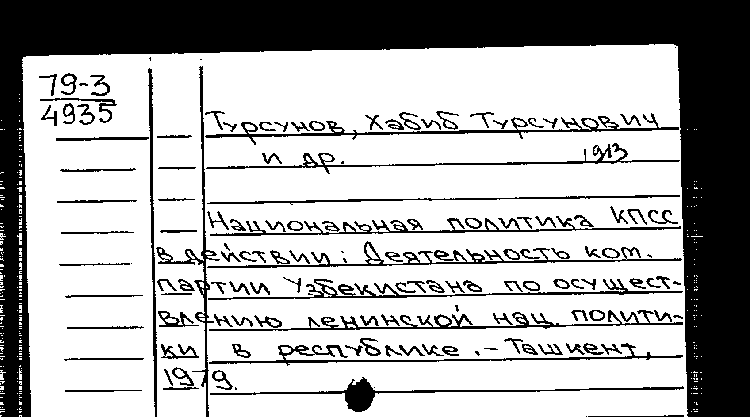 79-3
4935
Турсунов, Хабиб Турсунович
и др. 1913
Национальная политика КПСС
в действии: Деятельность ком.
партии Узбекистана по осущест-
влению ленинской нац. полити-
ки в республике. - Ташкент,
1979.